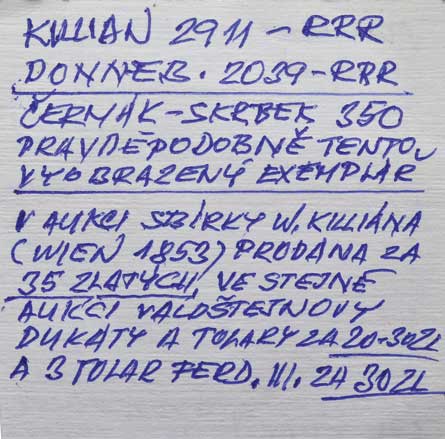 KILLIAN 2911 - RRR
DONNEB. 2039-RRR
ČERMÁK-SKRBEK 350
PRAVDĚPODOBNĚ TENTO
VYOBRAZENÝ EXEMPLÁŘ
V AUKCI SBÍRKY W. KILLIÁNA
(WIEN 1853) PRODÁNA ZA
35 ZLATÝCH, VE STEJNÉ
AUKCI VALDŠTEJNOVY
DUKÁTY A TOLARY ZA 20-30ZL
A 3 TOLAR FERD. III. ZA 30ZL